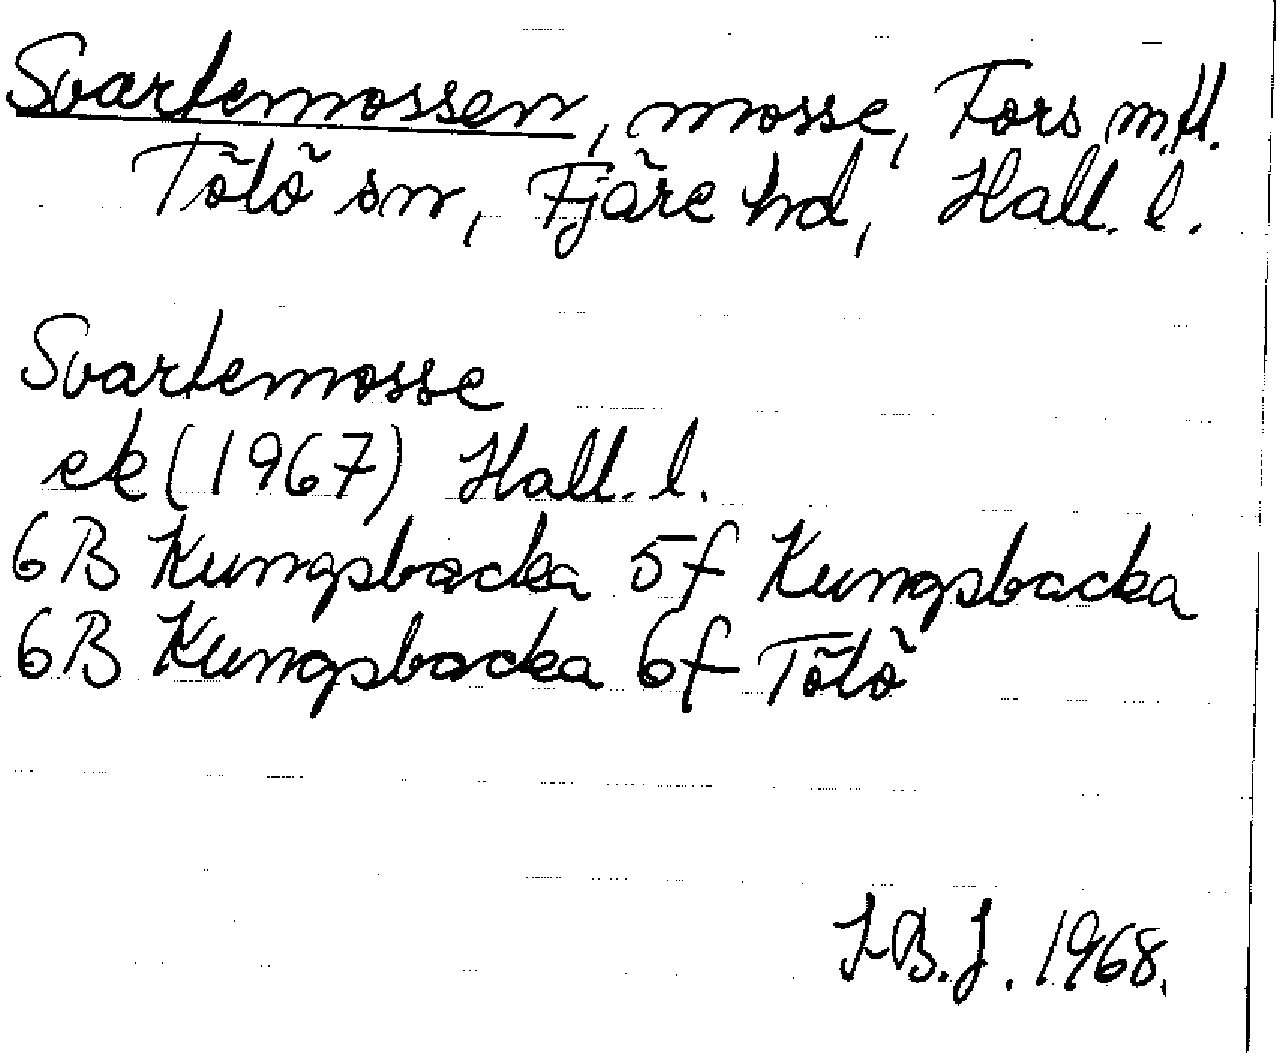 Svartemossen, mosse, Fors m.fl.
Tölö sn, Fjäre hd, Hall. l.
Svartemosse
ek (1967) Hall. l.
6B Kungsbacka 5f Kungsbacka
6B Kungsbacka 6f Tölö
I.B.J. 1968.